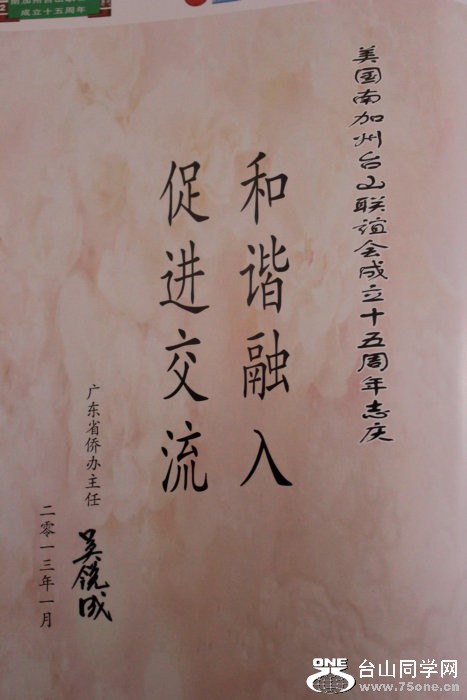 南加州台山联谊会
成立十五周年
美国南加州台山联谊会成立十五周年志庆
和谐融入
促进交流
广东省侨办主任
吴锐成
二零一三年一月
ONE
台山同学网
www.75one.cn